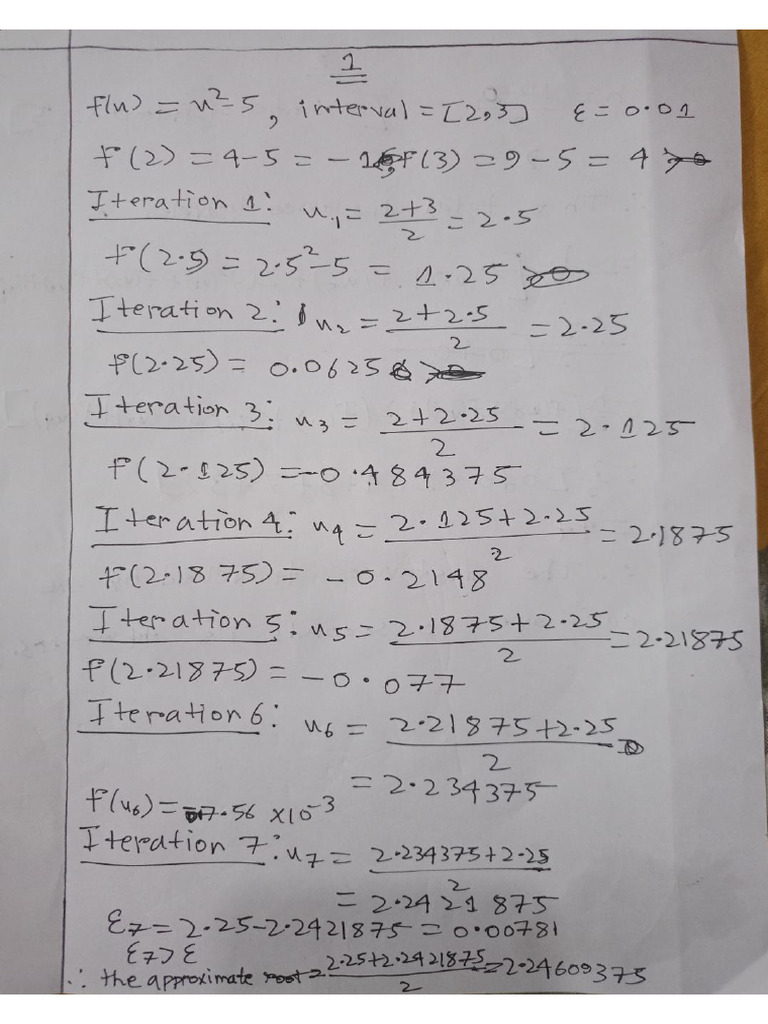 1
f(u) = u²-5, interval = [2,3] ε = 0.01
f(2) = 4-5 = -1, f(3) = 9-5 = 4
Iteration 1: u₁ = (2+3)/2 = 2.5
f(2.5) = 2.5²-5 = 1.25
Iteration 2: u₂ = (2+2.5)/2 = 2.25
f(2.25) = 0.0625
Iteration 3: u₃ = (2+2.25)/2 = 2.125
f(2.125) = -0.484375
Iteration 4: u₄ = (2.125+2.25)/2 = 2.1875
f(2.1875) = -0.2148
Iteration 5: u₅ = (2.1875+2.25)/2 = 2.21875
f(2.21875) = -0.077
Iteration 6: u₆ = (2.21875+2.25)/2
= 2.234375
f(u₆) = 7.56 x10⁻³
Iteration 7: u₇ = (2.234375+2.25)/2
= 2.2421875
ε₇ = 2.25-2.2421875 = 0.00781
ε₇ > ε
∴ the approximate root = (2.25+2.2421875)/2 = 2.24609375